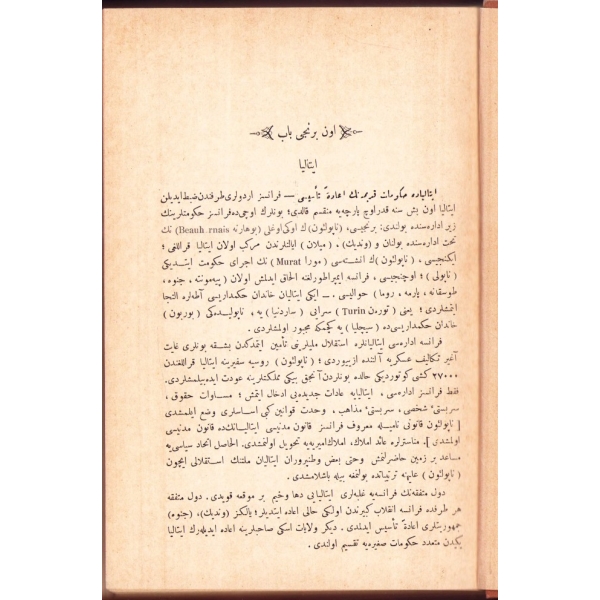 اون برنجی باب
ایتالیا
ایتالیاده حکومات قدیمه‌نك اعادهٔ تأسیسی — فرانسز اردولری طرفندن ضبط ایدیلن
ایتالیا اون بش سنه قدر اوچ پارچه‌یه منقسم قالدی؛ بونلرك اوچی‌ده فرانسز حکومتلرینك
زیر اداره‌سنده بولندی: برنجیسی، (ناپولئون)ك اوکی اوغلی (بوهارنه Beauh rnais) نك
تحت اداره‌سنده بولنان و (وندیك)، (میلان) ایالتلرندن مرکب اولان ایتالیا قراللغی؛
ایکنجیسی، (ناپولئون)ك انشته‌سی (مورا Murat) نك اجرای حکومت ایتدیکی
(ناپولی)؛ اوچنجیسی، فرانسه ایمپراطورلغنه الحاق ایدلمش اولان (پیه‌مونته، جنوه،
طوسقانه، پارمه، روما) حوالیسی. — ایکی ایتالیان خاندان حکمداریسی آطه‌لره التجا
ایتمشلردی؛ یعنی (تورن Turin) سرایی (ساردنیا) یه، ناپولیده‌کی (بوربون)
خاندان حکمداریسی‌ده (سیجلیا) یه کچمکه مجبور اولمشلردی.
فرانسه اداره‌سی ایتالیانلره استقلال ملیلرینی تأمین ایتمدکدن بشقه بونلری غایت
آغیر تکالیف عسکریه آلتنده ازییوردی؛ (ناپولئون) روسیه سفیرینه ایتالیا قراللغندن
۲۷۰۰۰ کشی کوتوردیکی حالده بونلردن آنجق بیکی مملکتلرینه عودت ایده‌بیلمشلردی.
فقط فرانسز اداره‌سی، ایتالیایه عادات جدیده‌یی ادخال ایتمش؛ مساوات حقوق،
سربستیٔ شخصی، سربستیٔ مذاهب، وحدت قوانین کبی اساسلری وضع ایلمشدی
[ناپولئون قانونی نامیله معروف فرانسز قانون مدنیسی ایتالیانك‌ده قانون مدنیسی
اولمشدی]. مناسترلره عائد املاك، املاك امیریه‌یه تحویل اولنمشدی. الحاصل اتحاد سیاسی‌یه
مساعد بر زمین حاضرلنمش وحتی بعض وطنپروران ایتالیان ملتنك استقلالی ایچون
(ناپولئون) علیهنه ترتیباتده بولنمغه بیله باشلامشدی.
دول متفقه‌نك فرانسه‌یه غلبه‌لری ایتالیایی دها وخیم بر موقعه قویدی. دول متفقه
هر طرفده فرانسه انقلاب کبیرندن اولکی حالی اعاده ایتدیلر؛ یالکز (وندیك)، (جنوه)
جمهوریتلری اعادهٔ تأسیس ایدلمدی. دیگر ولایات اسکی صاحبلرینه اعاده ایدیله‌رك ایتالیا
یکیدن متعدد حکومات صغیره‌یه تقسیم اولندی.